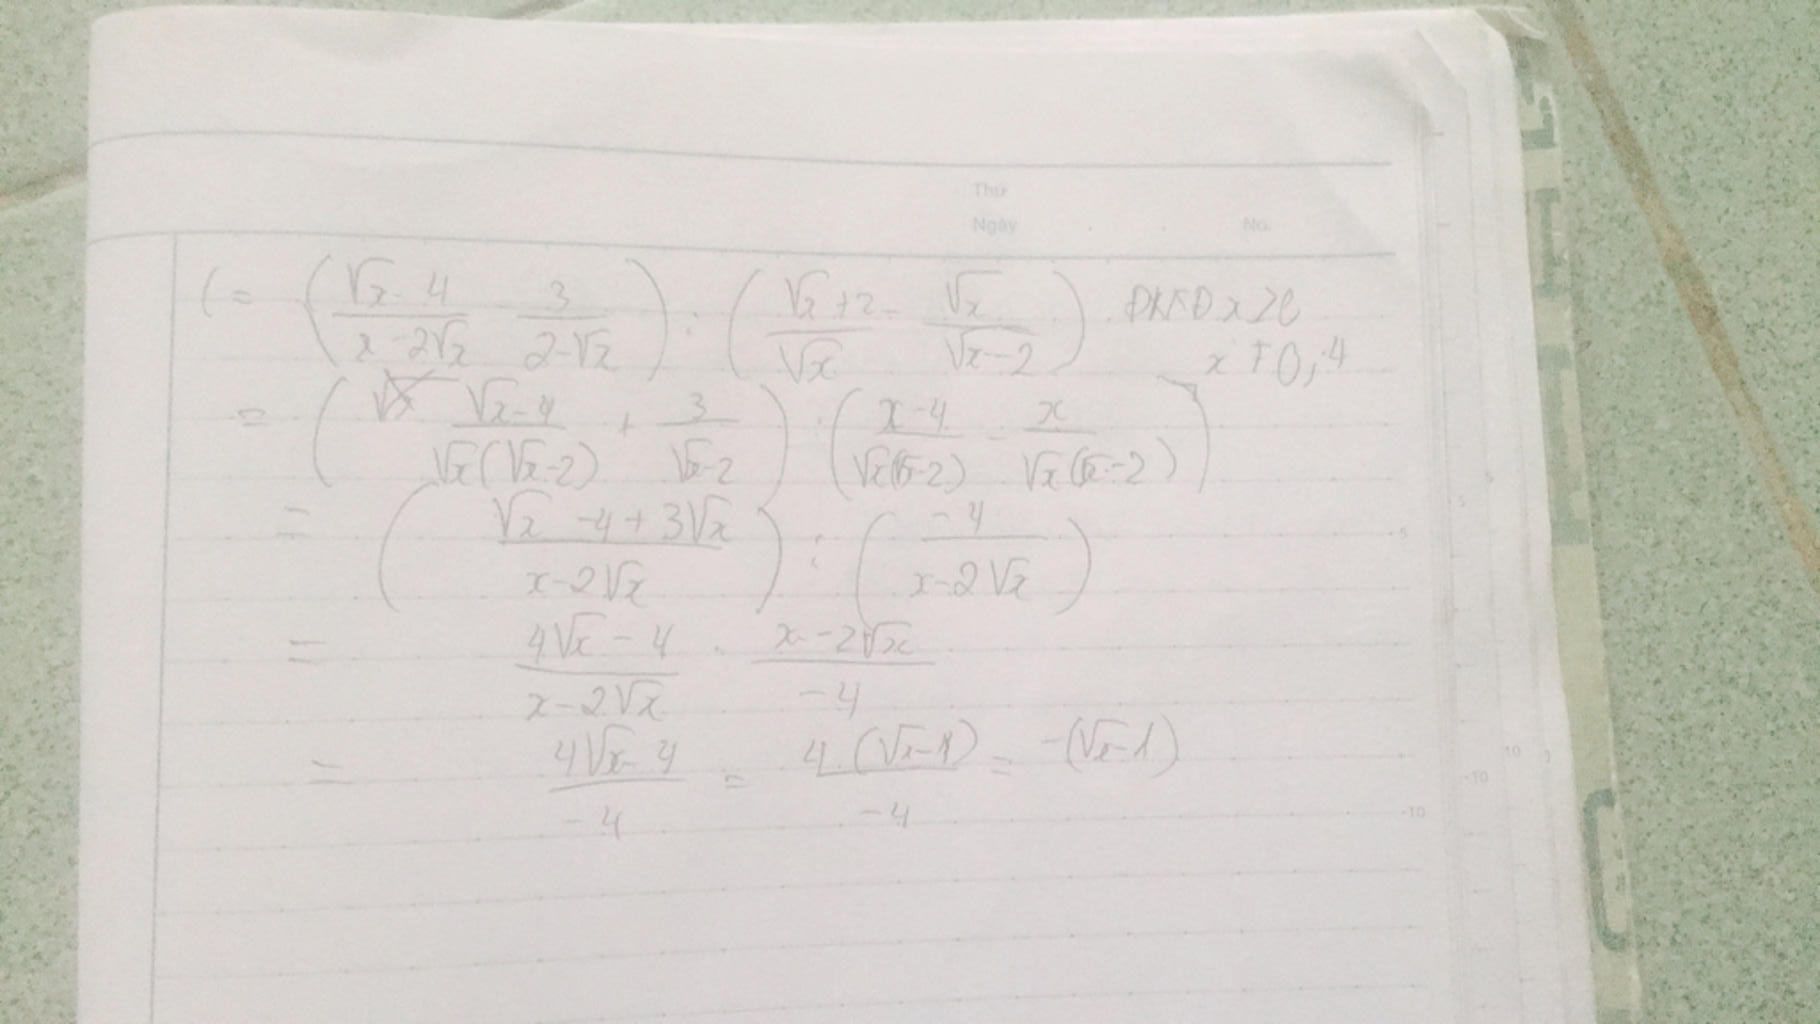 Thứ
Ngày No.
C = ( (√x - 4)/(x - 2√x) - 3/(2 - √x) ) : ( (√x + 2)/√x - √x/(√x - 2) ) ĐKXĐ x > 0
x ≠ 0, 4
= ( (√x - 4)/(√x(√x - 2)) + 3/(√x - 2) ) : ( (x - 4)/(√x(√x - 2)) - x/(√x(√x - 2)) )
= ( (√x - 4 + 3√x)/(x - 2√x) ) : ( -4/(x - 2√x) )
= (4√x - 4)/(x - 2√x) . (x - 2√x)/(-4)
= (4√x - 4)/(-4) = 4.(√x - 1)/(-4) = -(√x - 1)
5
5
5
10
10
10